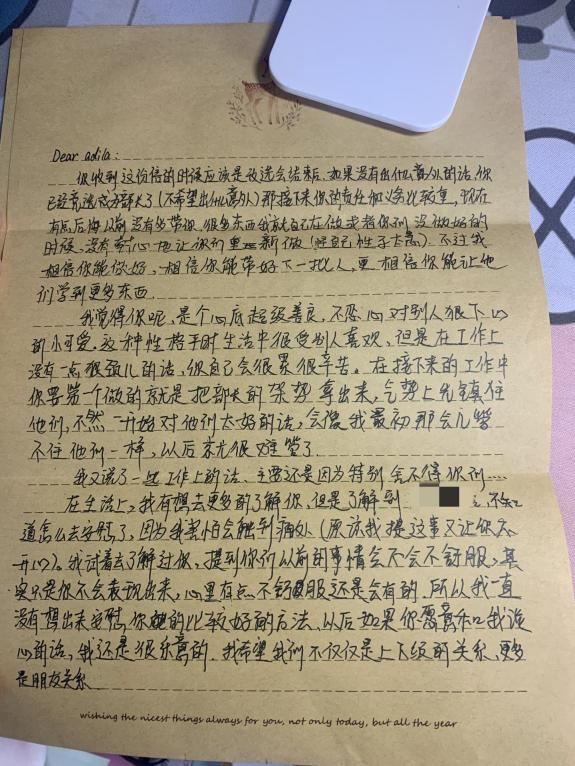 Dear adila:
你收到这份信的时候应该是改选会结束后,如果没有出什么意外的话,你
已经竞选成为部长了(不希望出什么意外)那接下来你的责任和义务比较重,现在
有点后悔以前没有多带你,很多东西我就自己在做或者你们没做好的
时候,没有耐心地让你们重新做(怪自己性子太急)不过我
相信你能做好,相信你能带好下一批人,更相信你能让他
们学到更多东西
我觉得你呢,是个心底超级善良,不忍心对别人狠下心
的小可爱,这种性格平时生活中很受别人喜欢,但是在工作上
没有一点狠劲儿的话,你自己会很累很辛苦。在接下来的工作中
你要第一个做的就是把部长的架势拿出来,气势上先镇住
他们,不然一开始对他们太好的话,会像我最初那会儿管
不住他们一样,以后就很难管了
我又说了一些工作上的话,主要还是因为特别舍不得你们....
在生活上,我有想去更多的了解你,但是了解到 不知
道怎么去安慰了,因为我害怕会触到痛处(原谅我提这事又让你不
开心)。我试着去了解过你,提到你们以前的事情会不会不舒服,其
实只是你不会表现出来,心里有点不舒服还是会有的,所以我一直
没有想出来安慰你的比较好的方法,以后如果你愿意和我谈
心的话,我还是很乐意的,我希望我们不仅仅是上下级的关系,更多
是朋友关系
wishing the nicest things always for you, not only today, but all the year